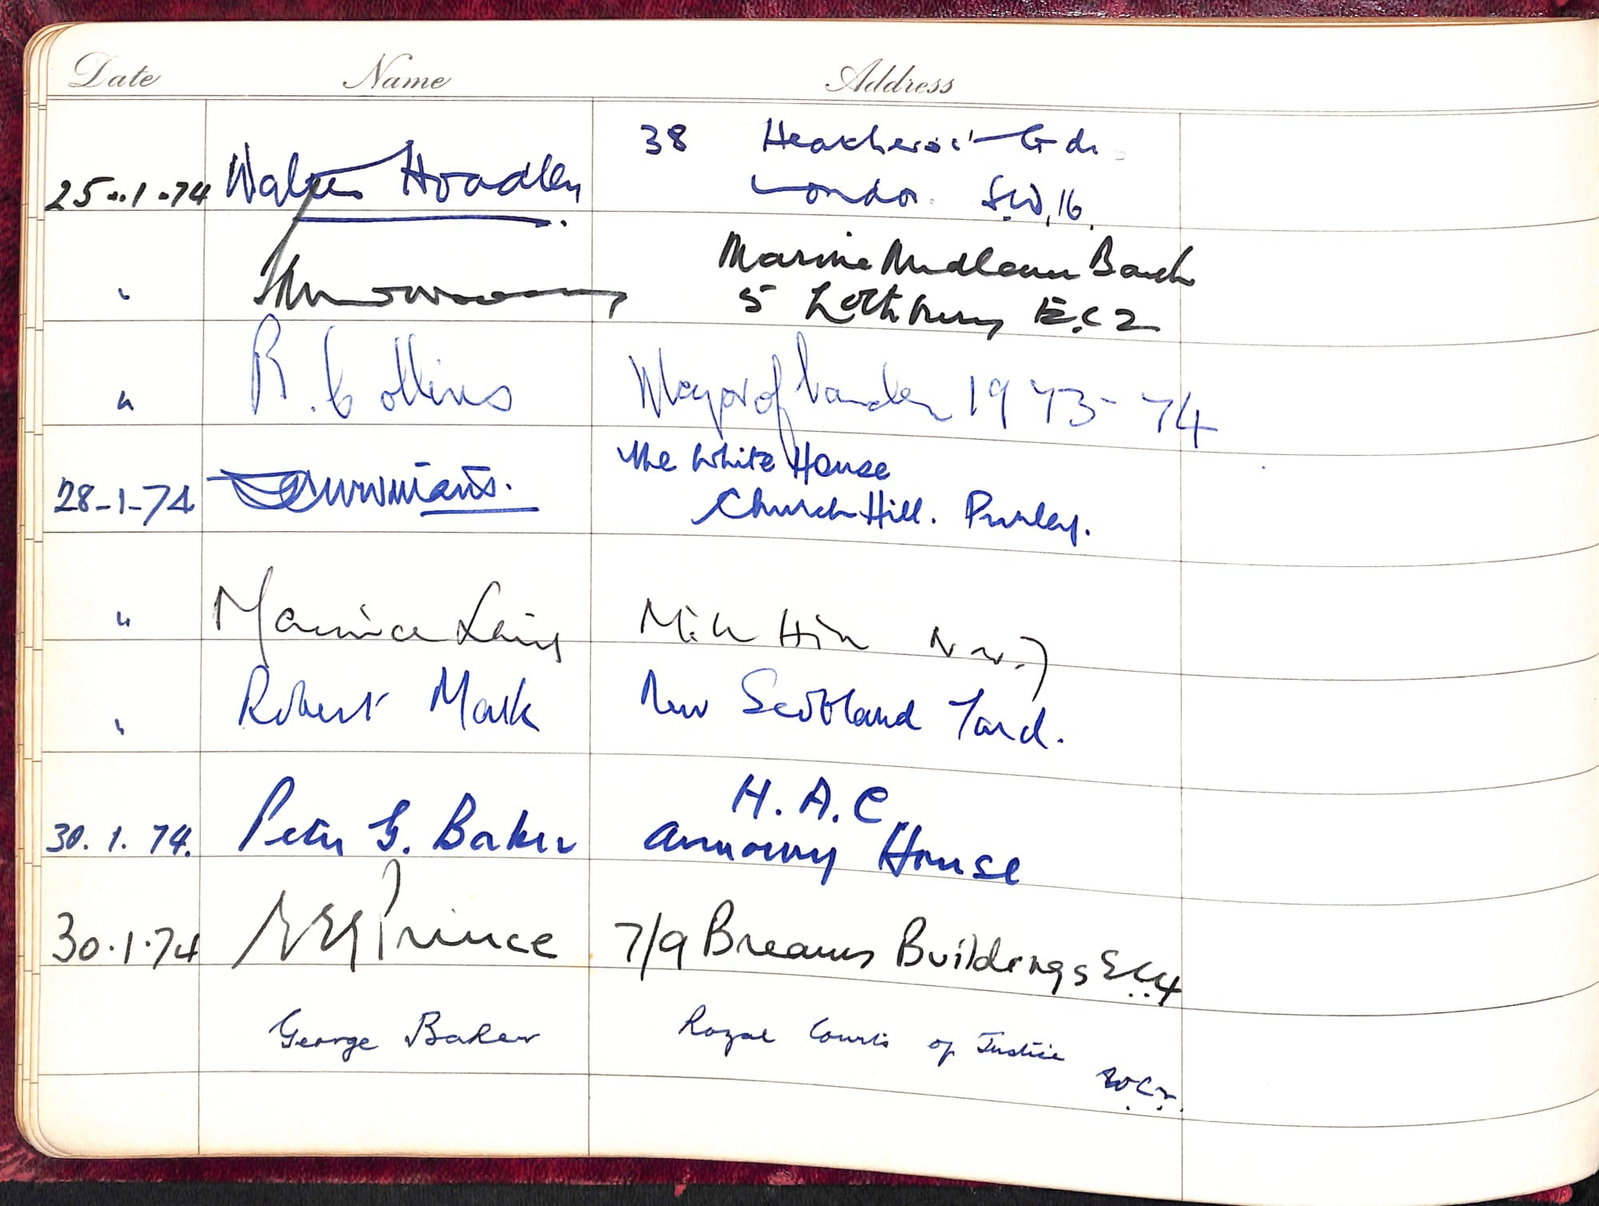 Date Name Address
38
25.1.74 Walter Hoadley
London. S.W.16.
" Marine Midland Bank
5 Lothbury E.C2
" R. Collins Mayor of Camden 1973-74
The White House
28-1-74
Church Hill. Purley.
" Maurice Laing Mill Hill N.W.7
" Robert Mark New Scotland Yard.
H.A.C.
30.1.74. Peter G. Baker Armoury House
30.1.74 Prince 7/9 Breams Buildings EC4
George Baker Royal Courts of Justice
W.C.2.